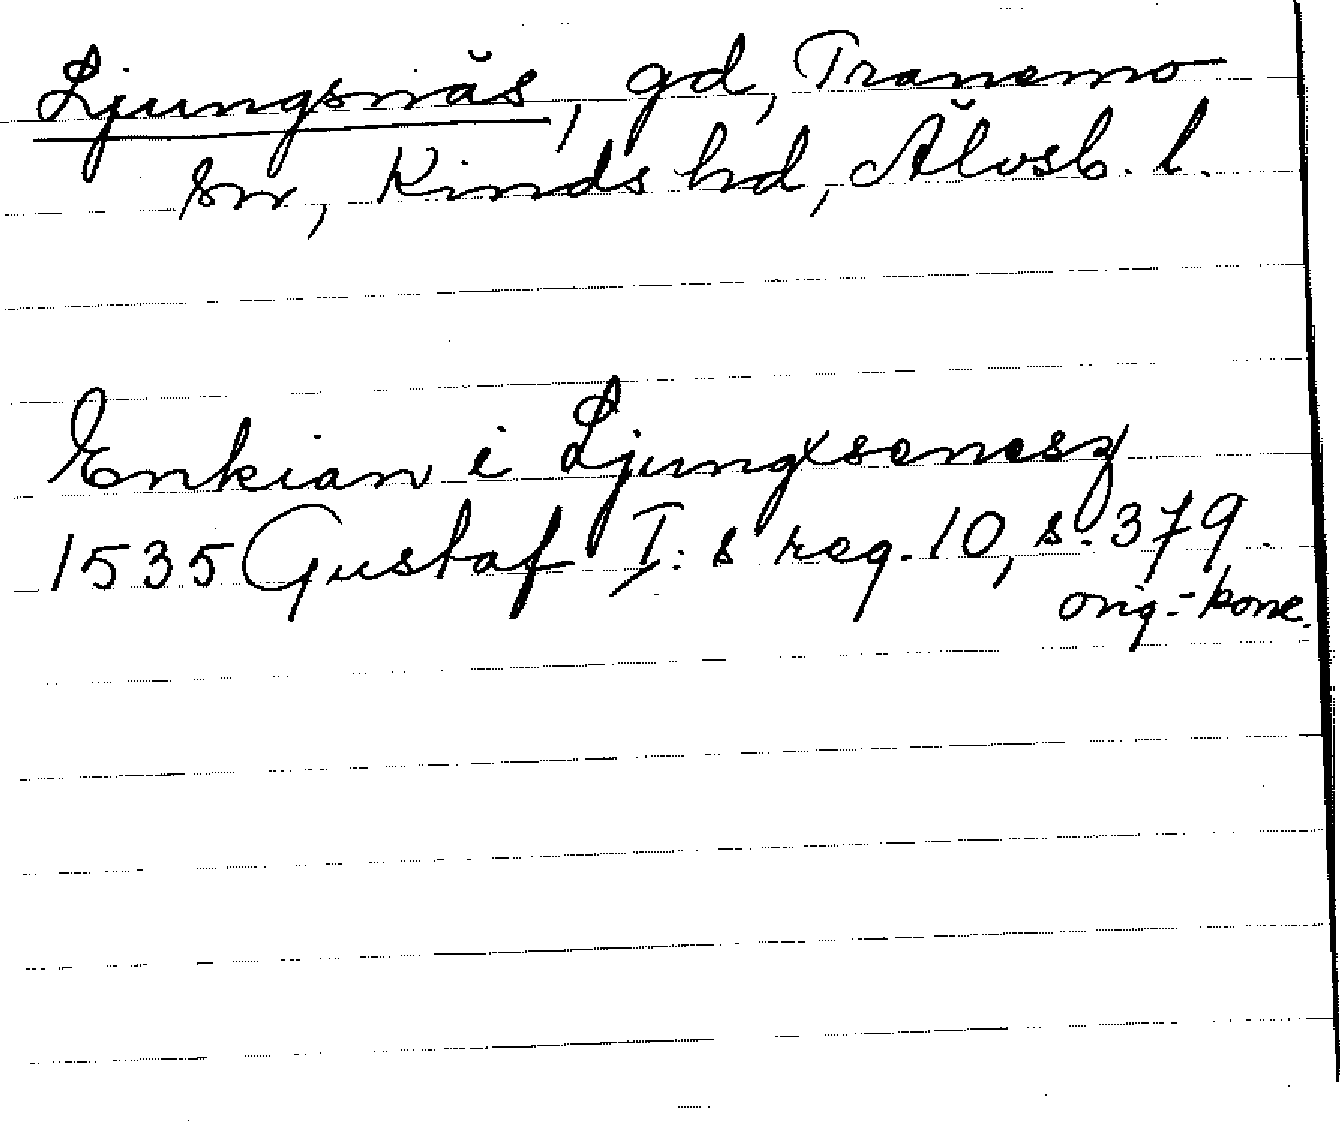 Ljungsnäs, gd, Tranemo
sn, Kinds hd, Älvsb. l.
Enkian i Ljungxsenesz
1535 Gustaf I:s reg. 10, s. 379.
orig.-konc.